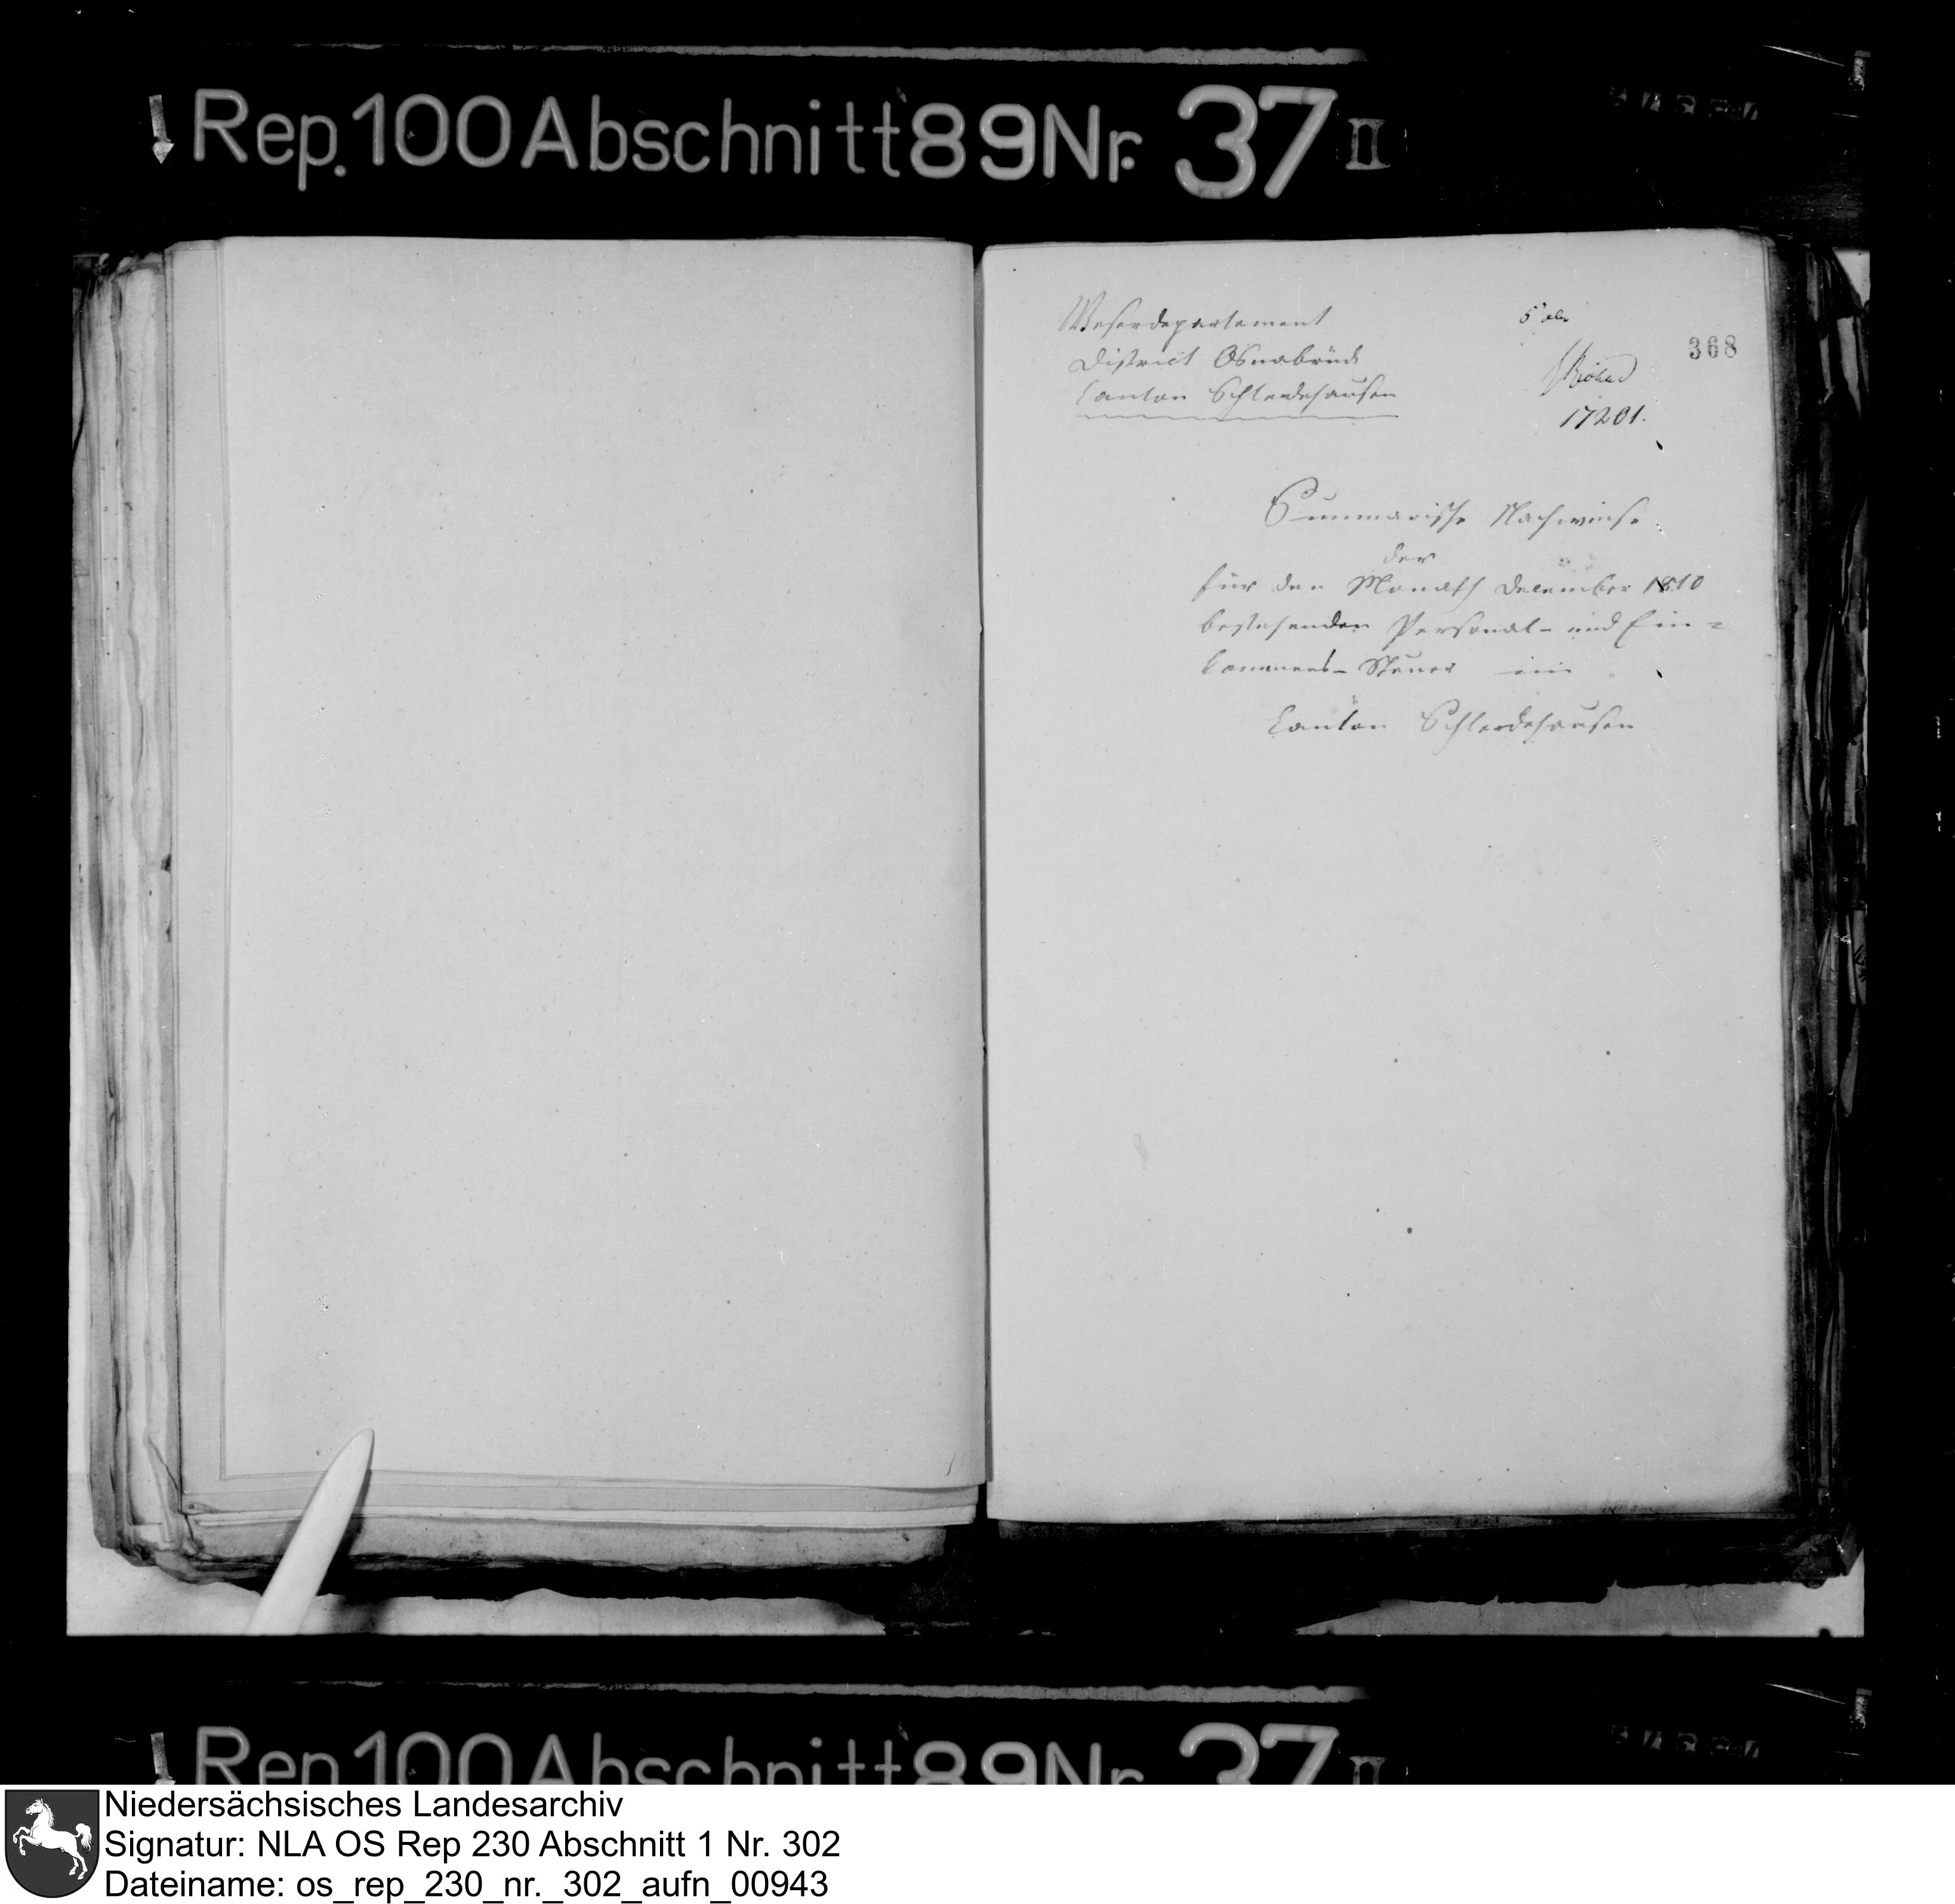 Rep. 100 Abschnitt 89 Nr. 37 II
Weserdepartement
District Osnabrück
Canton Schledehausen
368
17201.
Summarische Nachweise
der
für den Monath December 1810
bestehenden Personal- und Ein=
kommens-Steuer im
Canton Schledehausen
Rep. 100 Abschnitt 89 Nr. 37 II
Niedersächsisches Landesarchiv
Signatur: NLA OS Rep 230 Abschnitt 1 Nr. 302
Dateiname: os_rep_230_nr._302_aufn_00943